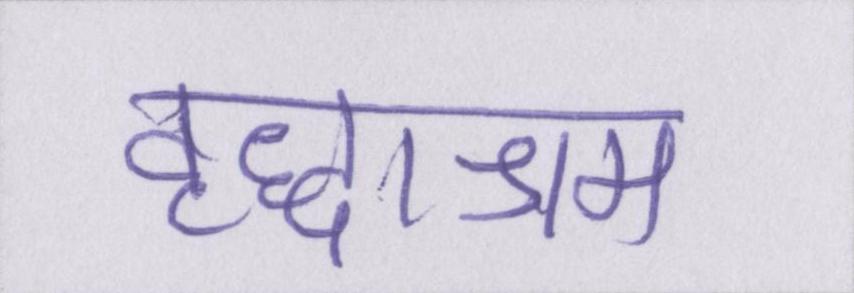 वृद्धाश्रम